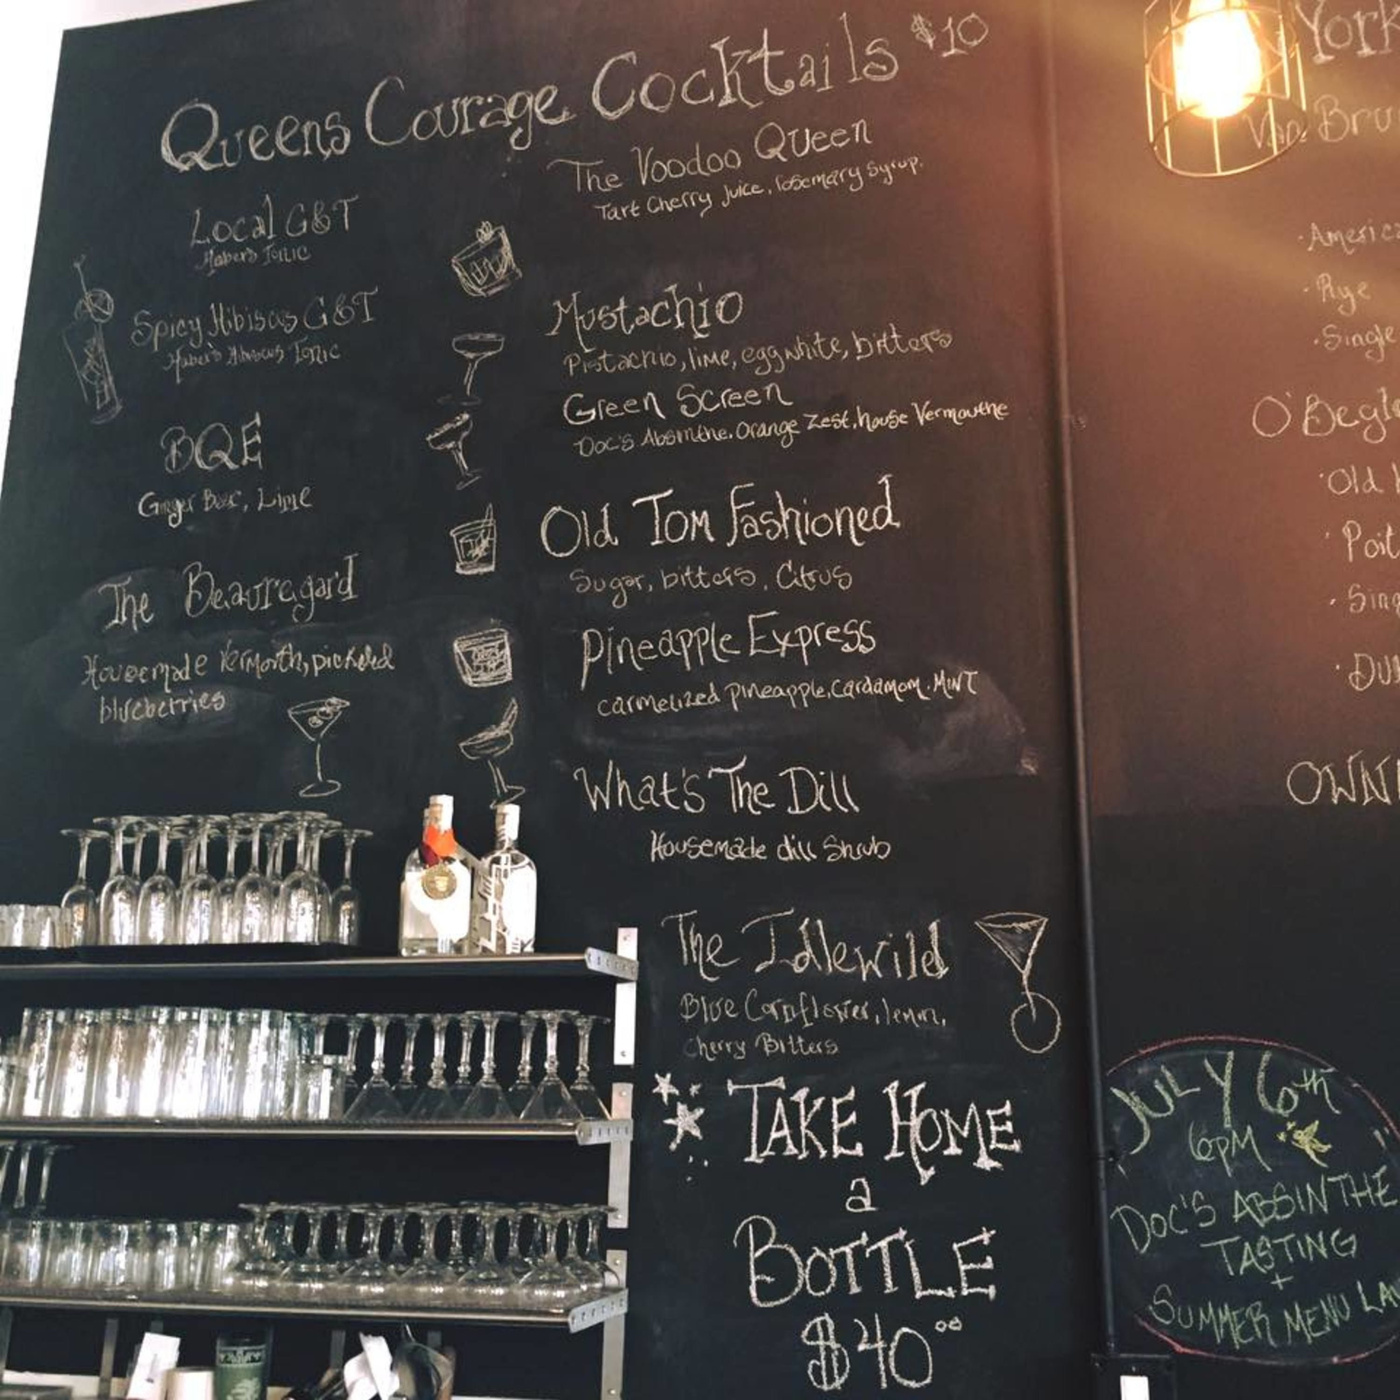 Queens Courage Cocktails $10
Local G&T
Haber's Tonic
Spicy Hibiscus G&T
Haber's Hibiscus Tonic
BQE
Ginger Beer, Lime
The Beauregard
Housemade Vermouth, pickeled
blueberries
The Voodoo Queen
Tart Cherry Juice, rosemary Syrup.
Mustachio
Pistachio, lime, egg white, bitters
Green Screen
Doc's Absinthe, Orange Zest, house Vermouthe
Old Tom Fashioned
Sugar, bitters, Citrus
Pineapple Express
carmelized pineapple, Cardamom, MiNT
What's The Dill
Housemade dill Shrub
The Idlewild
Blue Cornflower, lemon,
Cherry Bitters
TAKE HOME
a
BOTTLE
$40°°
York
Van Bru
·America
·Rye
·Single
O'Begl
·Old
·Poit
·Sing
·Dub
OWN
JULY 6th
6pM
DOC'S ABSINTHE
TASTING
+
SUMMER MENU LAU